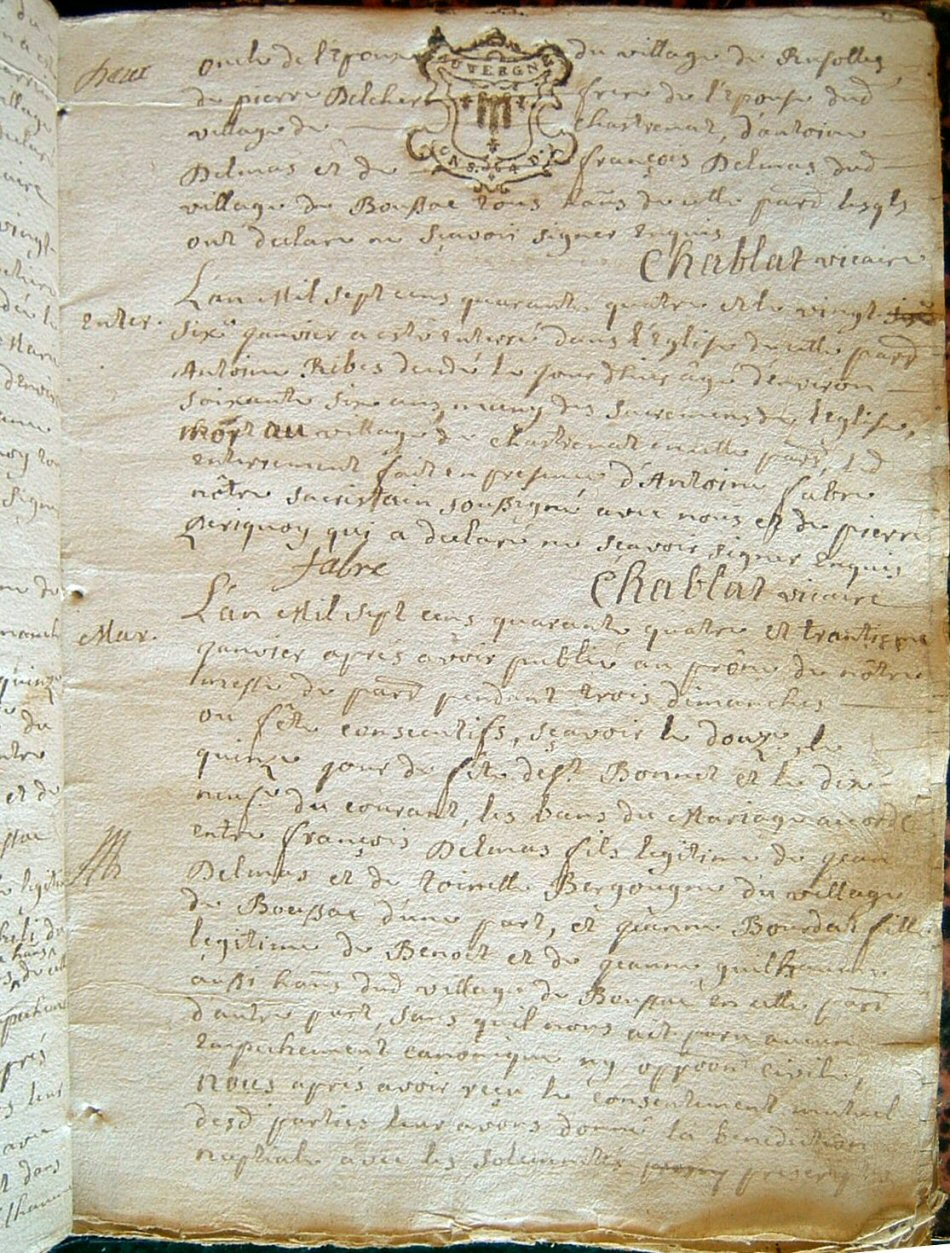 oncle de l'Epouse du village de
de pierre Delcher frere de l'Epouse dud
village de Chastrenat, d'antoine
Delmas et de françois Delmas dud
village de Boussac tous hañs de cette parr lesqls
ont declaré ne sçavoir signer enquis
Chablat vicaire
AUVERGNE
enter.
L'an Mil sept cens quarante quatre et le vingt
six janvier a esté enterré dans l'Eglise de cette parr
Antoine Ribes decedé le jour d'hier âgé d'environ
soixante six ans, muny des sacremens de l'eglise,
mort au village de Chastrenat en cette parr, led
enterrement fait en presence d'Antoine fabre
nôtre sacristain soussigné avec nous et de pierre
qui a declaré ne sçavoir signer enquis
fabre
Chablat vicaire
Mar.
L'an Mil sept cens quarante quatre et trantieme
janvier aprés avoir publié au prône de nôtre
messe de parr pendant trois dimanches
ou fête consecutifs, sçavoir le douze, le
quinze jour de fête de st Bonnet et le dixe
neufe du courant, les bans du Mariage accordé
entre françois Delmas fils legitime de jean
Delmas et de toinette Bergougne du village
de Boussac d'une part, et jeanne Bourdet fille
legitime de Benoit et de jeanne guilhaume
aussi hañs dud village de Boussac en cette parr
d'autre part, sans qu'il nous ait paru aucun
empechement canonique ny oppõon civile,
nous aprés avoir reçu le consentement mutuel
desd parties leur avons donné la benediction
nuptiale avec les solemnités